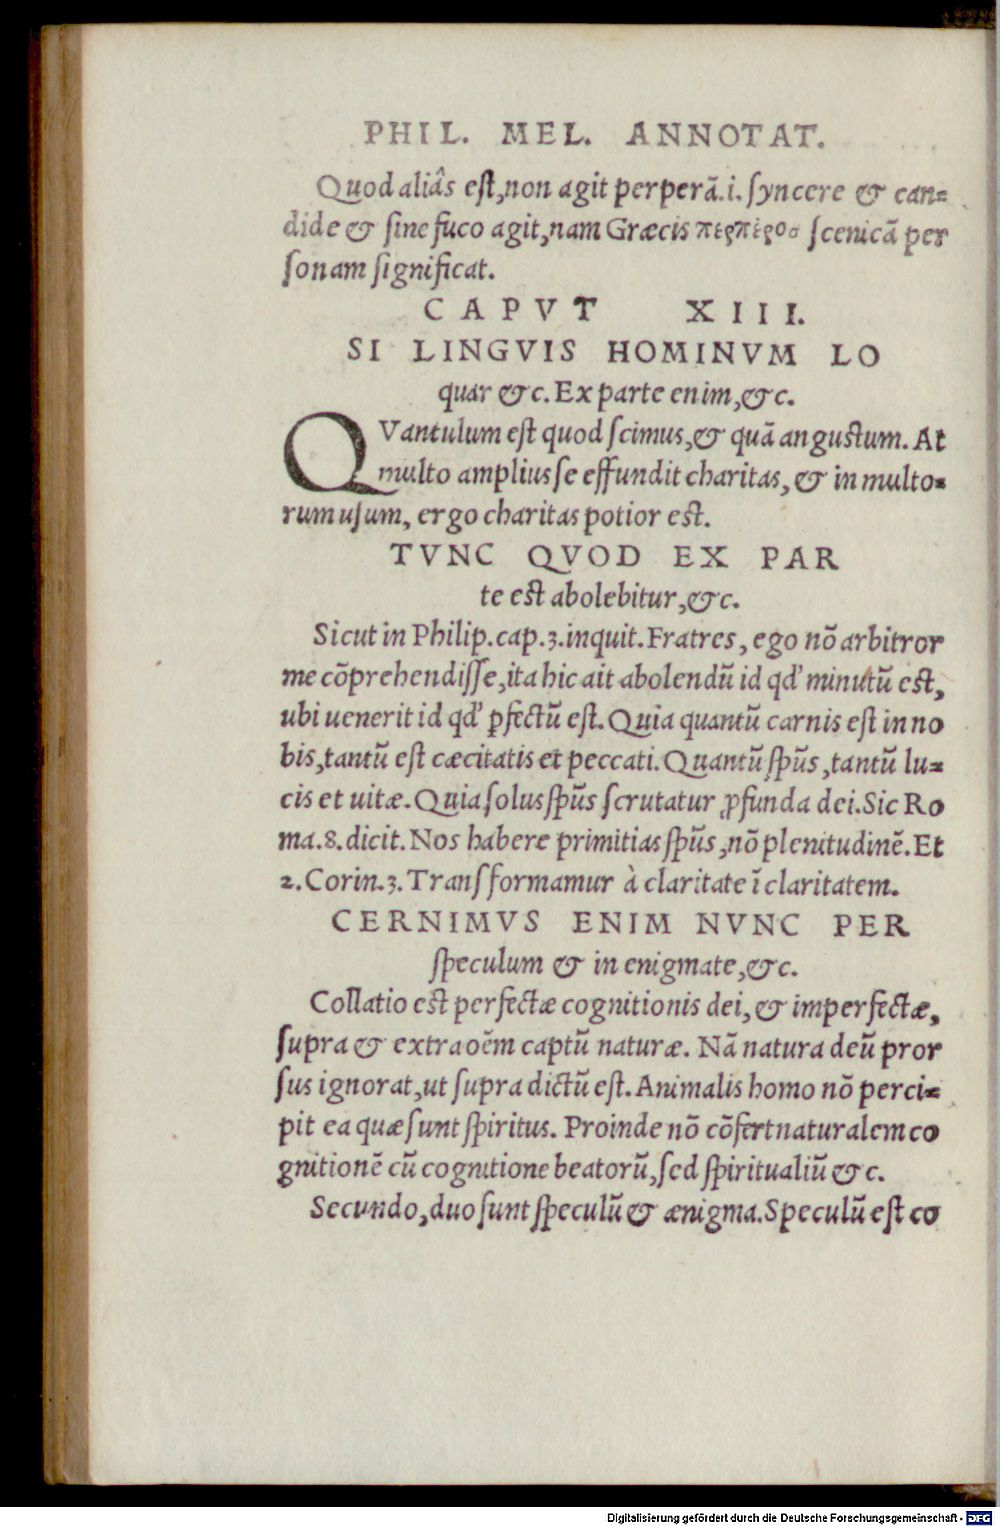 PHIL. MEL. ANNOTAT.
Quod aliâs est, non agit perperā.i. syncere & can=
dide & sine fuco agit, nam Græcis περπέρος scenicā per
sonam significat.
CAPVT XIII.
SI LINGVIS HOMINVM LO
quar &c. Ex parte enim, &c.
QVantulum est quod scimus, & quā angustum. At
multo amplius se effundit charitas, & in multo=
rum usum, ergo charitas potior est.
TVNC QVOD EX PAR
te est abolebitur, &c.
Sicut in Philip. cap. 3. inquit. Fratres, ego nō arbitror
me cōprehendisse, ita hic ait abolendū id qđ minutū est,
ubi uenerit id qđ ꝑfectū est. Quia quantū carnis est in no
bis, tantū est cæcitatis et peccati. Quantū spūs, tantū lu=
cis et uitæ. Quia solus spūs scrutatur ꝓfunda dei. Sic Ro
ma. 8. dicit. Nos habere primitias spūs, nō plenitudinē. Et
2. Corin. 3. Transformamur à claritate ī claritatem.
CERNIMVS ENIM NVNC PER
speculum & in enigmate, &c.
Collatio est perfectæ cognitionis dei, & imperfectæ,
supra & extra oēm captū naturæ. Nā natura deū pror
sus ignorat, ut supra dictū est. Animalis homo nō perci=
pit ea quæ sunt spiritus. Proinde nō cōfert naturalem co
gnitionē cū cognitione beatorū, sed spiritualiū &c.
Secundo, duo sunt speculū & ænigma. Speculū est co
Digitalisierung gefördert durch die Deutsche Forschungsgemeinschaft - DFG